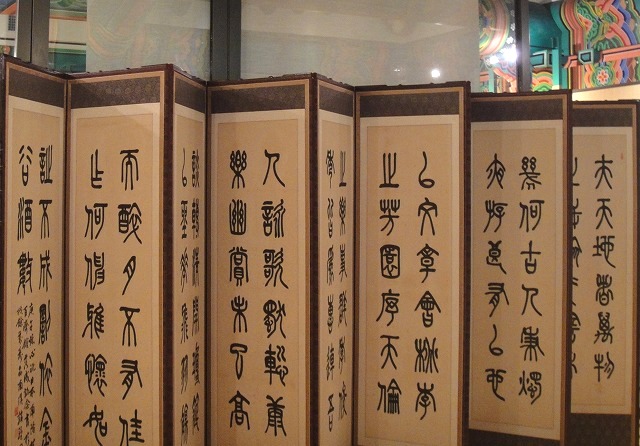 夫天地者萬物
幾何古人秉燭
夜游良有以也
以文章會桃李
之芳園序天倫
之樂事群季俊
秀皆為惠連吾
人詠歌獨慚康
樂幽賞未已高
談轉清開瓊筵
以坐花飛羽觴
而醉月不有佳
作何伸雅懷如
詩不成罰依金
谷酒數